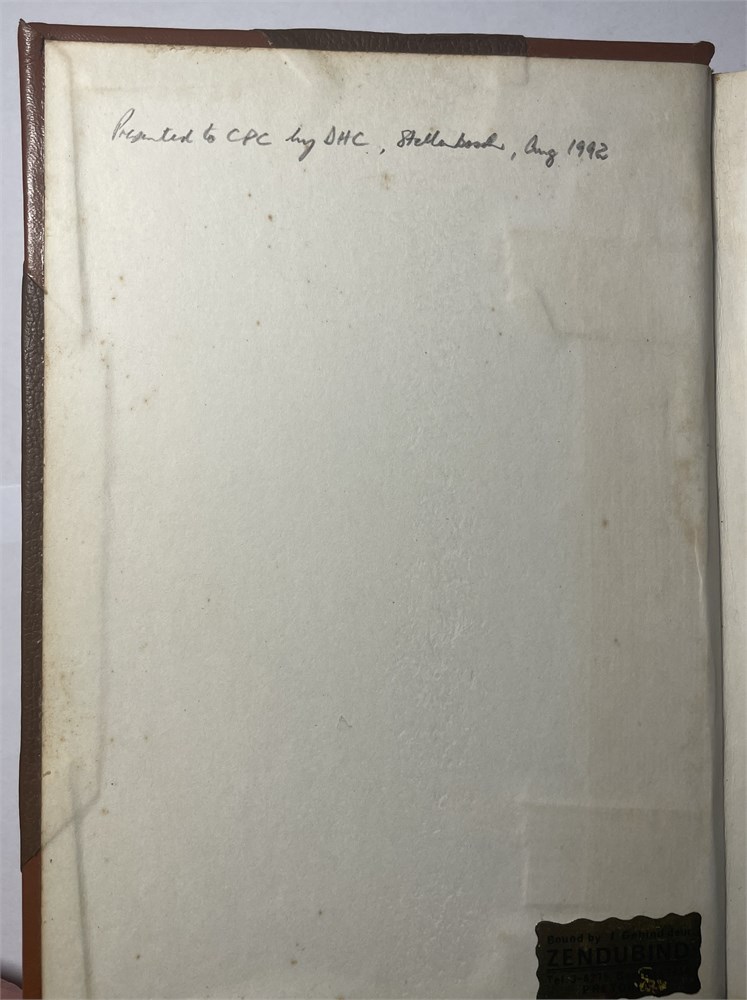 Presented to CPC by DHC, Stellenbosch, Aug 1992
Bound by
ZENDUBIND